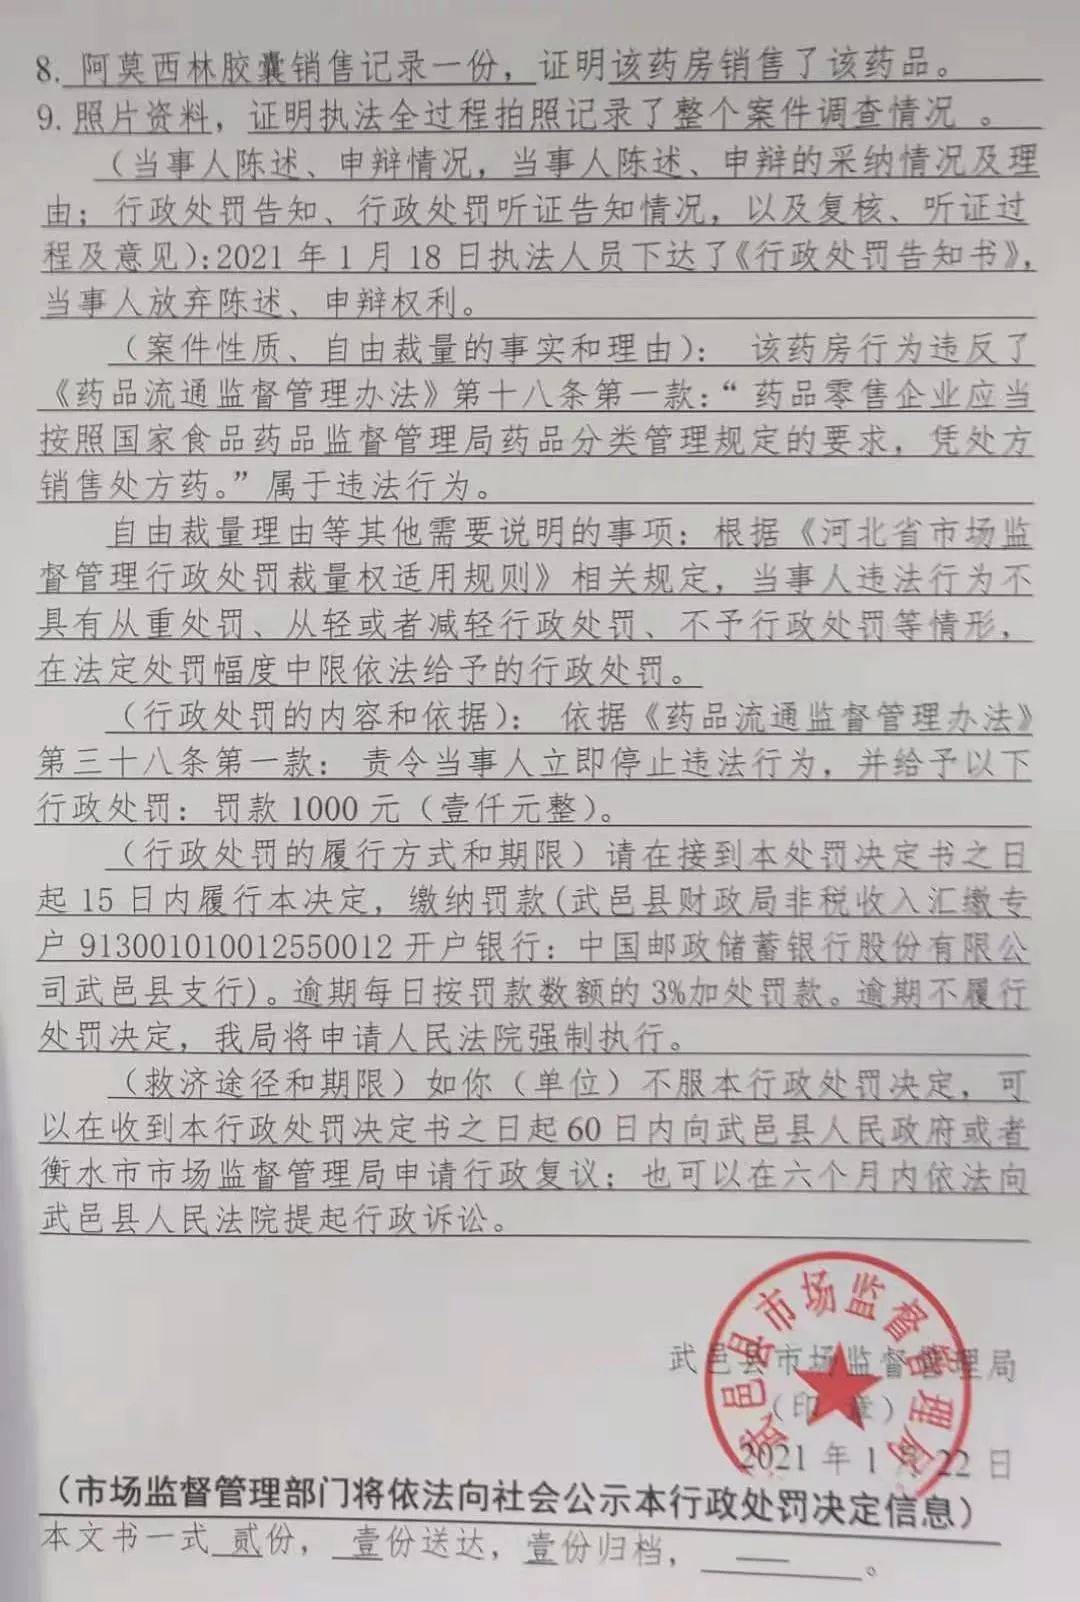 8. 阿莫西林胶囊销售记录一份，证明该药房销售了该药品。
9. 照片资料，证明执法全过程拍照记录了整个案件调查情况 。
（当事人陈述、申辩情况，当事人陈述、申辩的采纳情况及理
由；行政处罚告知、行政处罚听证告知情况，以及复核、听证过
程及意见）：2021 年 1 月 18 日执法人员下达了《行政处罚告知书》，
当事人放弃陈述、申辩权利。
（案件性质、自由裁量的事实和理由）： 该药房行为违反了
《药品流通监督管理办法》第十八条第一款：“ 药品零售企业应当
按照国家食品药品监督管理局药品分类管理规定的要求，凭处方
销售处方药。”属于违法行为。
自由裁量理由等其他需要说明的事项：根据《河北省市场监
督管理行政处罚裁量权适用规则》相关规定，当事人违法行为不
具有从重处罚、从轻或者减轻行政处罚、不予行政处罚等情形，
在法定处罚幅度中限依法给予的行政处罚。
（行政处罚的内容和依据）： 依据《药品流通监督管理办法》
第三十八条第一款： 责令当事人立即停止违法行为，并给予以下
行政处罚：罚款 1000 元（壹仟元整）。
（行政处罚的履行方式和期限）请在接到本处罚决定书之日
起 15 日内履行本决定，缴纳罚款(武邑县财政局非税收入汇缴专
户 913001010012550012 开户银行：中国邮政储蓄银行股份有限公
司武邑县支行)。逾期每日按罚款数额的 3%加处罚款。逾期不履行
处罚决定，我局将申请人民法院强制执行。
（救济途径和期限）如你（单位）不服本行政处罚决定，可
以在收到本行政处罚决定书之日起 60 日内向武邑县人民政府或者
衡水市市场监督管理局申请行政复议；也可以在六个月内依法向
武邑县人民法院提起行政诉讼。
武邑县市场监督管理局
武邑县市场监督管理局
（印 章）
2021 年 1 月 22 日
（市场监督管理部门将依法向社会公示本行政处罚决定信息）
本文书一式 贰份， 壹份送达，壹份归档， — 。